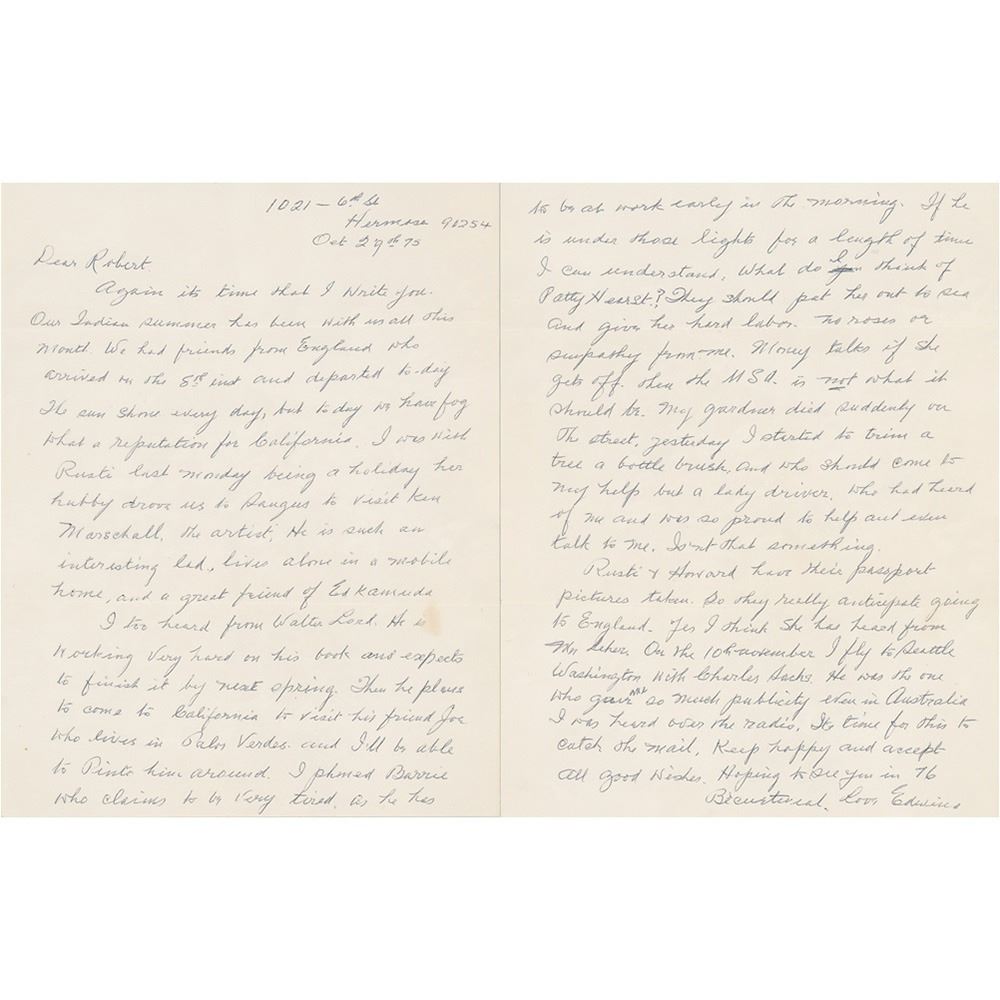 1021 - 6th St
Hermosa 90254
Oct 29th 75
Dear Robert,
Again its time that I write you.
Our Indian summer has been with us all this
month. We had friends from England who
arrived on the 8th inst and departed to-day
The sun shone every day, but today we have fog
what a reputation for California. I was with
Rusti last monday being a holiday her
hubby drove us to Saugus to visit Ken
Marschall, the artist, He is such an
interesting lad, lives alone in a mobile
home, and a great friend of Ed Kamuda
I too heard from Walter Lord. He is
working very hard on his book and expects
to finish it by next spring. Then he plans
to come to California to visit his friend Joe
who lives in Palos Verdes. and I'll be able
to Pinto him around. I phoned Barrie
who claims to be very tired, as he has
to be at work early in the morning. If he
is under those lights for a length of time
I can understand. What do you think of
Patty Hearst? They should put her out to sea
and give her hard labor. no roses or
sympathy from me. Money talks if she
gets off. then the USA. is not what it
should be. My gardner died suddenly on
the street, yesterday I started to trim a
tree a bottle brush, and who should come to
my help but a lady driver, who had heard
of me and was so proud to help and even
talk to me. Isn't that something.
Rusti & Howard have their passport
pictures taken. So they really anticipate going
to England. Yes I think she has heard from
Mrs On the 10th november I fly to Seattle
Washington with Charles Sachs. He was the one
who gave me so much publicity even in Australia
I was heard over the radio, Its time for this to
catch the mail, Keep happy and accept
all good wishes. Hoping to see you in 76
Love Edwina